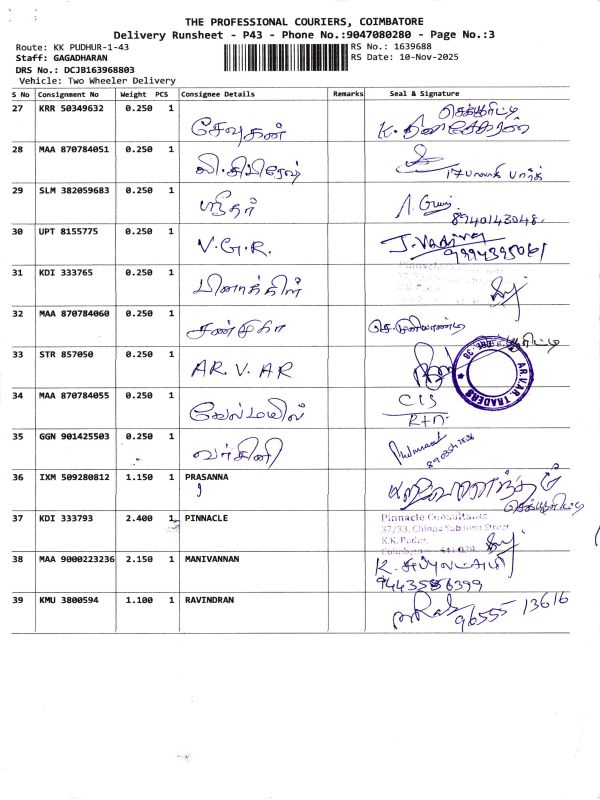 THE PROFESSIONAL COURIERS, COIMBATORE
Delivery Runsheet - P43 - Phone No.:9047080280 - Page No.:3
Route: KK PUDHUR-1-43 RS No.: 1639688
Staff: GAGADHARAN RS Date: 10-Nov-2025
DRS No.: DCJB163968803
Vehicle: Two Wheeler Delivery
S No Consignment No Weight PCS Consignee Details Remarks Seal & Signature
செக்யூரிட்டி
27 KRR 50349632 0.250 1 சேவுகன்
28 MAA 870784051 0.250 1
29 SLM 382059683 0.250 1 ஸ்ரீதர்
8940143048
30 UPT 8155775 0.250 1 V.G.R. J.Vadivel
31 KDI 333765 0.250 1
32 MAA 870784060 0.250 1 சண்முகா
33 STR 857050 0.250 1 AR. V. AR
AR.VAR. TRADERS
34 MAA 870784055 0.250 1 வேல்மயில் C/S
35 GGN 901425503 0.250 1 வர்சினி
36 IXM 509280812 1.150 1 PRASANNA
செக்யூரிட்டி
37 KDI 333793 2.400 1 PINNACLE Pinnacle Consultants
37/33, Chinna Subbanna Street
K.K. Pudur,
38 MAA 9000223236 2.150 1 MANIVANNAN
9443556399
39 KMU 3800594 1.100 1 RAVINDRAN
96555 13616